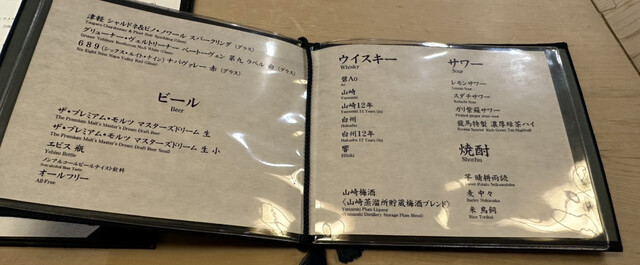 津軽 シャルドネ&ピノ・ノワール スパークリング (グラス)
Tsugaru Chardonnay & Pinot Noir Sparkling (Glass)
グリューナー・ヴェルトリーナー ベートーヴェン 第九 ラベル 白 (グラス)
689 (シックス・エイト・ナイン) ナパヴァレー 赤 (グラス)
Six Eight Nine Napa Valley Red (Glass)
ビール
Beer
ザ・プレミアム・モルツ マスターズドリーム 生
The Premium Malt's Master's Dream Draft Beer
ザ・プレミアム・モルツ マスターズドリーム 生 小
The Premium Malt's Master's Dream Draft Beer Small
エビス 瓶
Yebisu Bottle
ノンアルコールビールテイスト飲料
Non-alcohol Beer Taste
オールフリー
All-Free
ウイスキー
Whisky
碧Ao
Ao
山崎
Yamazaki
山崎12年
Yamazaki 12 Years Old
白州
Hakushu
白州12年
Hakushu 12 Years Old
響
Hibiki
山崎梅酒
〈山崎蒸溜所貯蔵梅酒ブレンド〉
Yamazaki Plum Liqueur
(Yamazaki Distillery Storage Plum Blend)
サワー
Sour
レモンサワー
Lemon Sour
スダチサワー
Sudachi Sour
ガリ紫蘇サワー
龍馬特製 濃厚緑茶ハイ
焼酎
Shochu
芋 晴耕雨読
Sweet Potato Seikoudoku
麦 中々
Barley Nakanaka
米 鳥飼
Rice Torikai